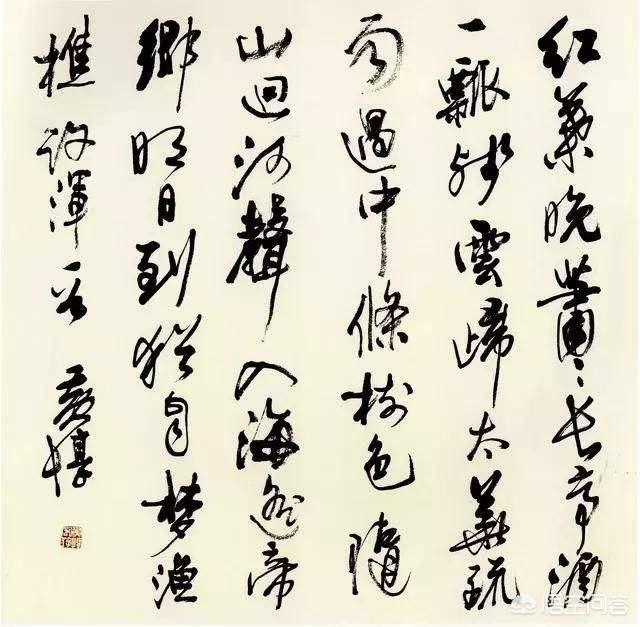 紅葉晚蕭〻長亭酒
一瓢殘雲歸太華疏
雨過中條樹色隨
山迴河聲入海遙帝
鄉明日到猶自夢漁
樵許渾 黃惇
悟空问答